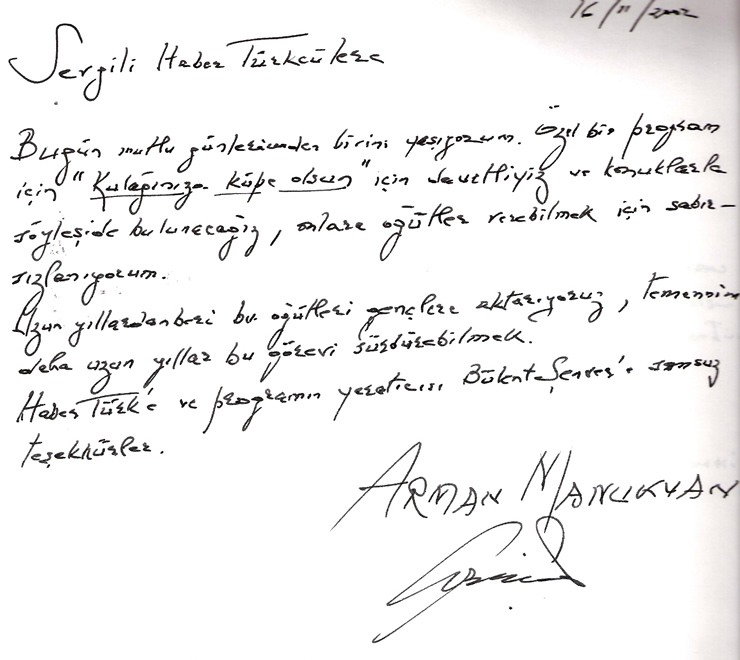 16/11/2002
Sevgili Haber Türkcülere
Bugün mutlu günlerimden birini yaşıyorum. Özel bir program
için "Kulağınıza küpe olsun" için davetliyiz ve konuklarla
söyleşide bulunacağız, onlara öğütler verebilmek için sabır-
sızlanıyorum.
Uzun yıllardanberi bu öğütleri gençlere aktarıyoruz, temennim
daha uzun yıllar bu görevi sürdürebilmek.
Haber Türk'e ve programın yaratıcısı Bülent Şenver'e sonsuz
teşekkürler.
ARMAN MANUKYAN